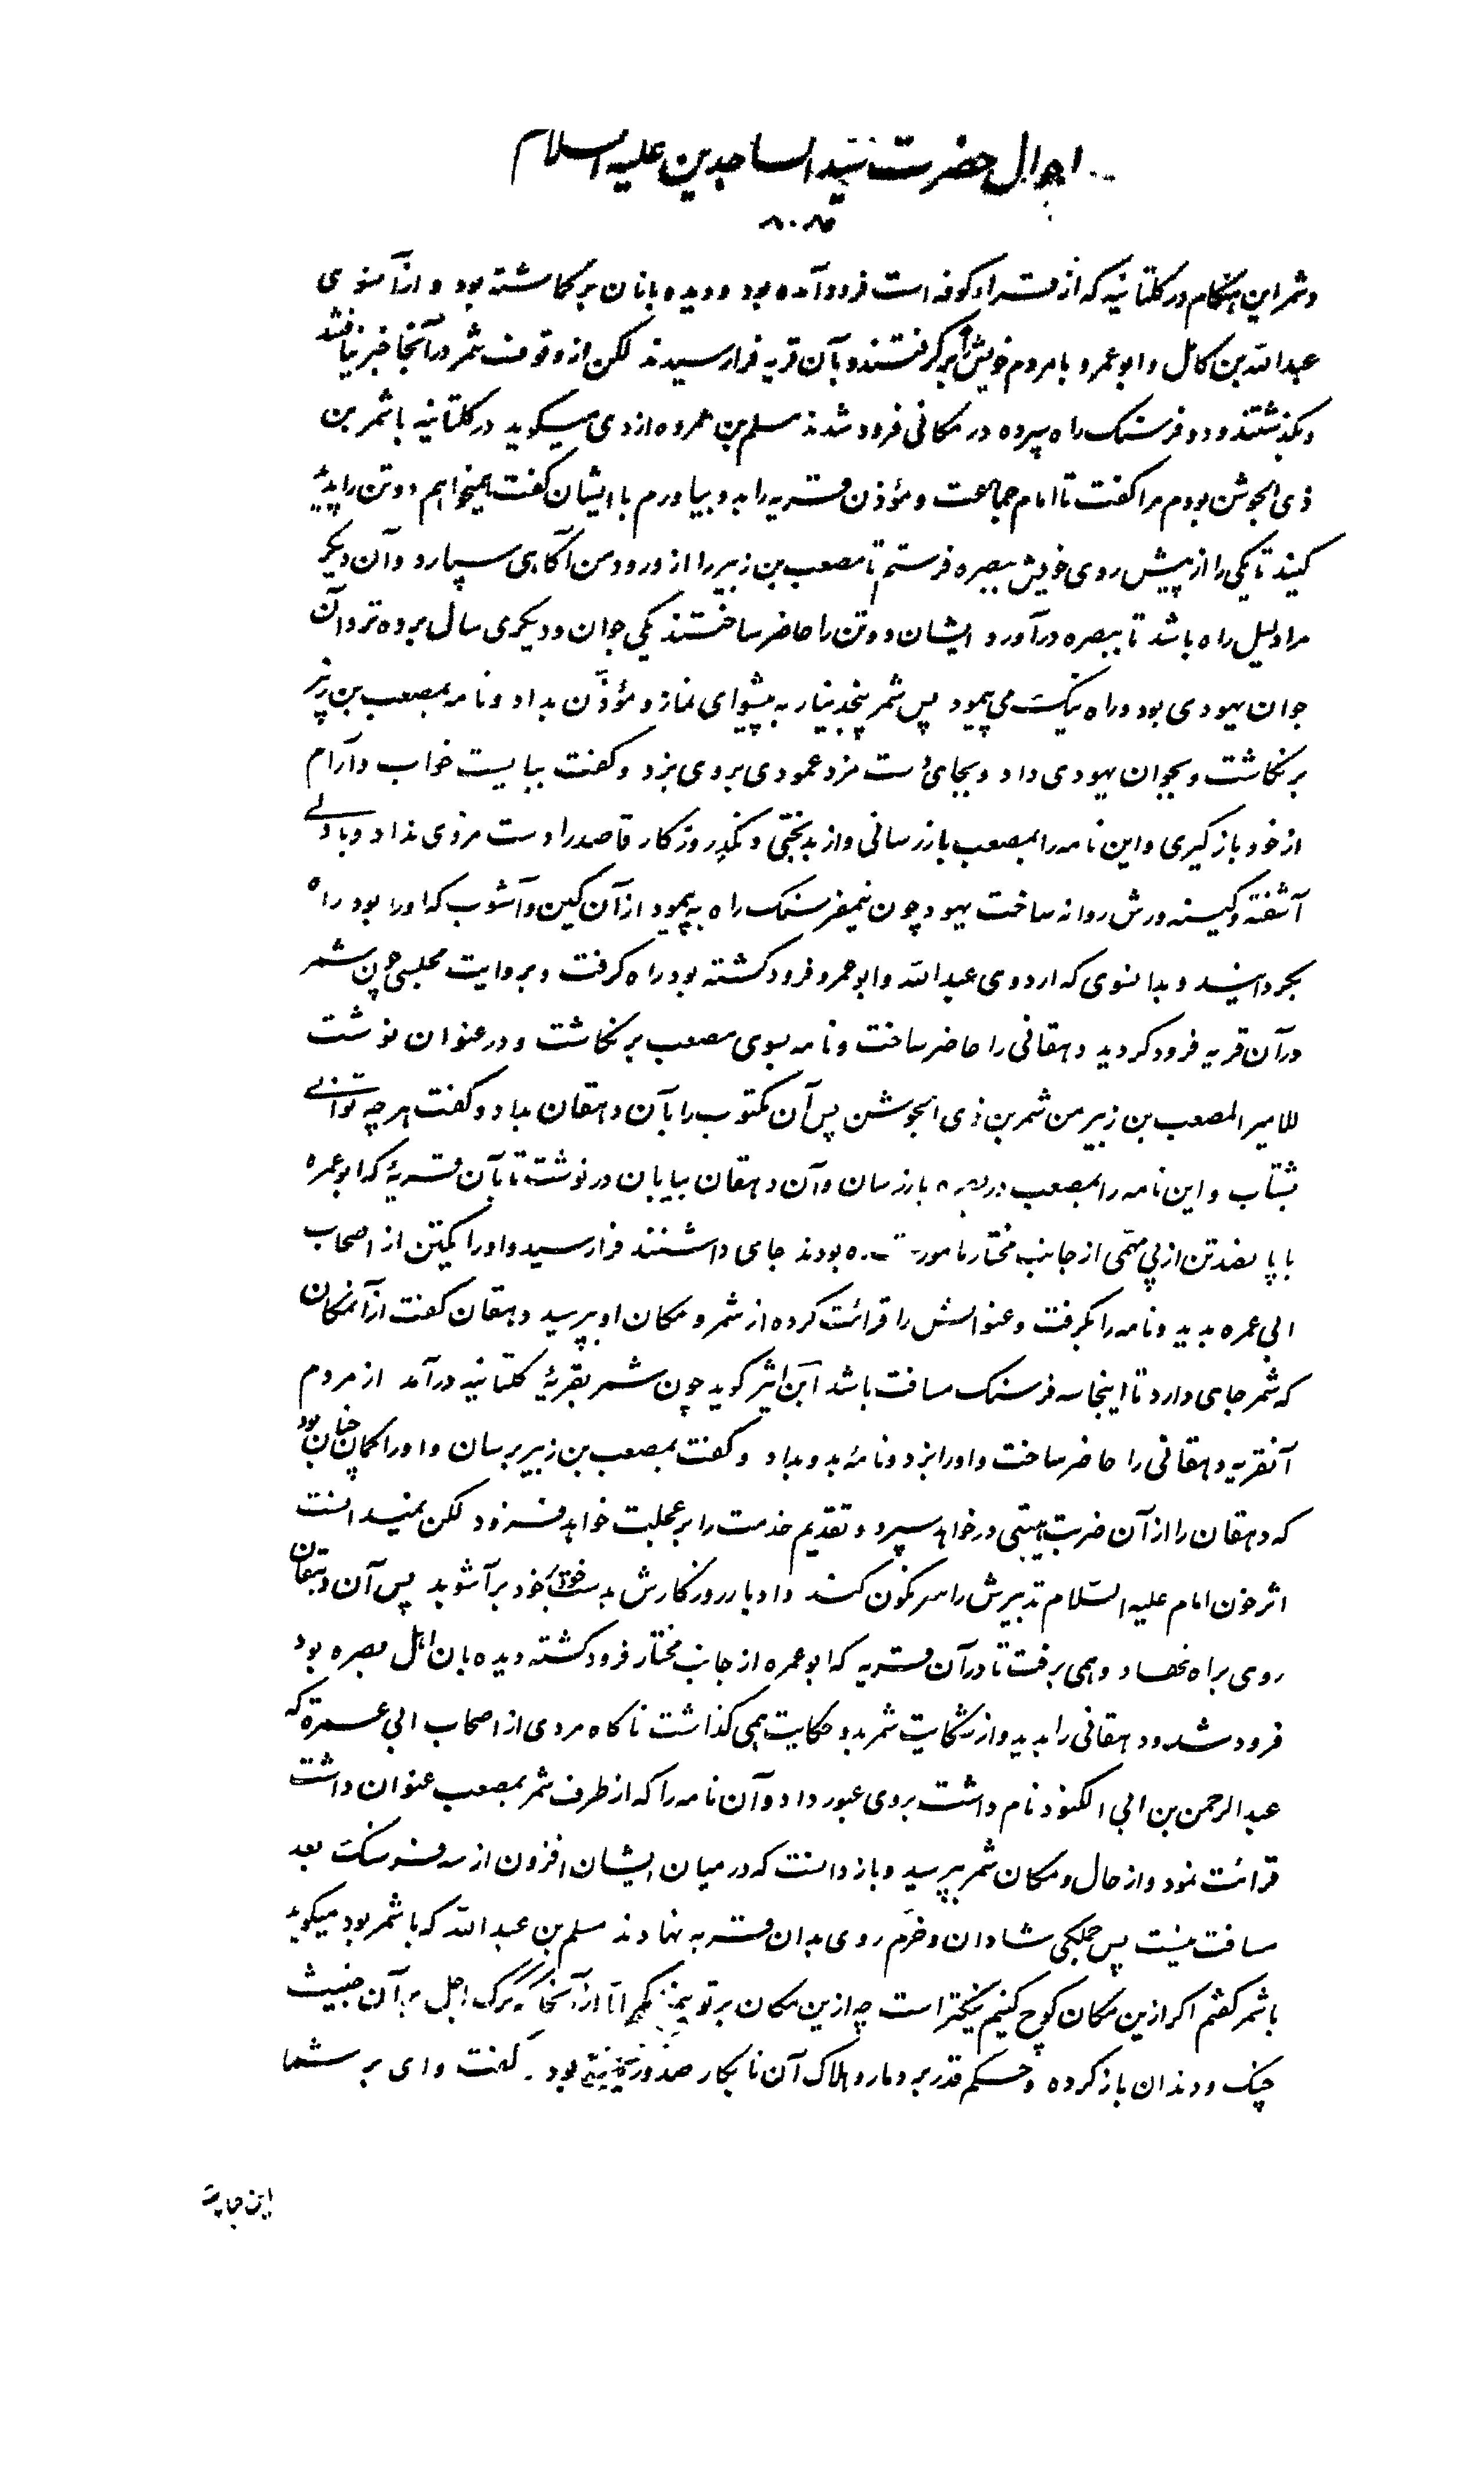 احوال حضرت سید الساجدین علیه السلام
وشمر این هنگام در کلتانیه که از قراء کوفه است فرود آمده بود ودیده بانان بر کماشته بود و از آنسوی
عبدالله بن کامل و ابو عمرو با مردم خویش راه بر گرفتند و بآن قریه فرا رسیدند لکن از وقوف شمر در آنجا خبر نیافتند
و بگذشتند و دو فرسنک راه سپرده در مکانی فرود شدند مسلم بن عمرو ازدی میکوید در کلتانیه با شمر بن
ذی الجوشن بودم مرا کفت تا امام جماعت و مؤذن قریه را بدو بیاورم با ایشان کفت همیخواهم دوتن را پدید
کنید تا یکی را از پیش روی خویش ببصره فرستم تا مصعب بن زبیر را از ورود من آکاهی سپارد و آن دیکر
مرا دلیل راه باشد تا ببصره درآورد ایشان دوتن را حاضر ساختند یکی جوان و دیکری سال برده تر و آن
جوان یهودی بود و راه نیک می پیمود پس شمر پنجدینار به پیشوای نماز و مؤذن بداد و نامه بمصعب بن زبیر
بر نکاشت و بجوان یهودی داد و بجای دست مزد عمودی بروی بزد و کفت ببایست خواب و آرام
از خود باز کیری و این نامه را بمصعب باز رسانی و از بدبختی و نکد روزکار قاصد را دست مزدی نداد و با دلی
آشفته و کینه ورش روانه ساخت یهود چون نیمفرسنک راه به پیمود از آن کین و آشوب که او را بود راه
بگردانید و بدانسوی که اردوی عبدالله و ابو عمرو فرود کشته بود راه کرفت و بروایت مجلسی چون شمر
در آن قریه فرود کردید دهقانی را حاضر ساخت و نامه بسوی مصعب بر نکاشت و در عنوان نوشت
للامیر المصعب بن زبیر من شمر بن ذی الجوشن پس آن مکتوب را بآن دهقان بداد و کفت هر چه توانی
بشتاب و این نامه را بمصعب در بصره باز رسان و آن دهقان بیابان در نوشت تا بآن قریهٔ که ابو عمره
با پانصد تن از پی مهمی از جانب مختار مامور بودند جای داشتند فرا رسید و او را یکتن از اصحاب
ابی عمره بدید و نامه را بگرفت و عنوانش را قرائت کرده از شمر و مکان او بپرسید دهقان کفت از آنمکان
که شمر جای دارد تا اینجا سه فرسنک مسافت باشد ابن اثیر کوید چون شمر بقریهٔ کلتانیه درآمد از مردم
آنقریه دهقانی را حاضر ساخت و او را بزد و نامهٔ بدو بداد و کفت بمصعب بن زبیر برسان و او را کمان چنان بود
که دهقان را از آن ضرب هیبتی در خواهد سپرد و تقدیم خدمت را بر عجلت خواهد فزود لکن نمیدانست
اثر خون امام علیه السلام تدبیرش را سر نکون کند و ادبار روزکارش بدست خود بر آشوبد پس آن دهقان
روی براه نهاد و همی برفت تا در آن قریه که ابو عمره از جانب مختار فرود کشته دیده بان اهل بصره بود
فرود شد و دهقانی را بدید و از شکایت شمر بدو حکایت همی کذاشت ناکاه مردی از اصحاب ابی عمرة که
عبدالرحمن بن ابی الکنود نام داشت بروی عبور داد و آن نامه را که از طرف شمر بمصعب عنوان داشت
قرائت نمود و از حال و مکان شمر بپرسید و باز دانست که در میان ایشان افزون از سه فرسنک بعد
مسافت نیست پس جملکی شادان و خرم روی بدان قریه نهادند مسلم بن عبدالله که با شمر بود میکوید
با شمر کفتم اکر ازین مکان کوچ کنیم نیکتر است چه ازین مکان بر تو بیمناکم اما از آنجا که کرک اجل بر آن خبیث
چنک و دندان باز کرده و حکم قدر بر دمار و هلاک آن نابکار صدور یافته بود. کفت وای بر شما